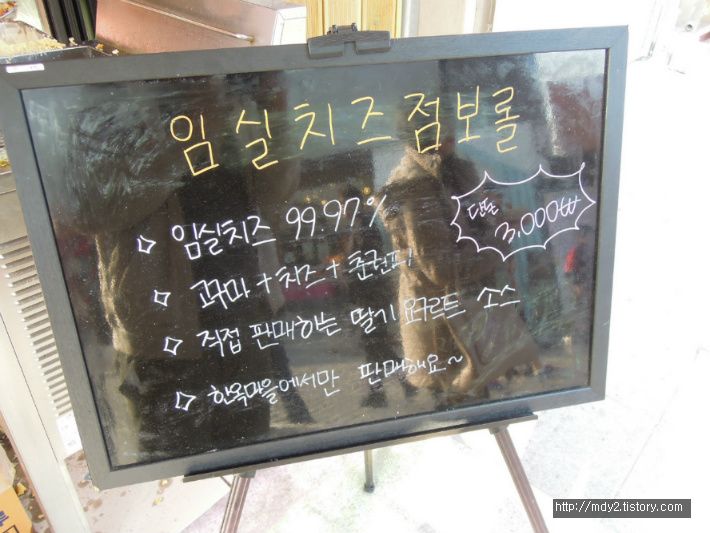 임실치즈점보롤
단돈
3,000₩
◇ 임실치즈 99.97%
◇ 고구마 + 치즈 + 춘권피!
◇ 직접 판매하는 딸기 요구르트 소스
◇ 한옥마을에서만 판매해요~
http://mdy2.tistory.com